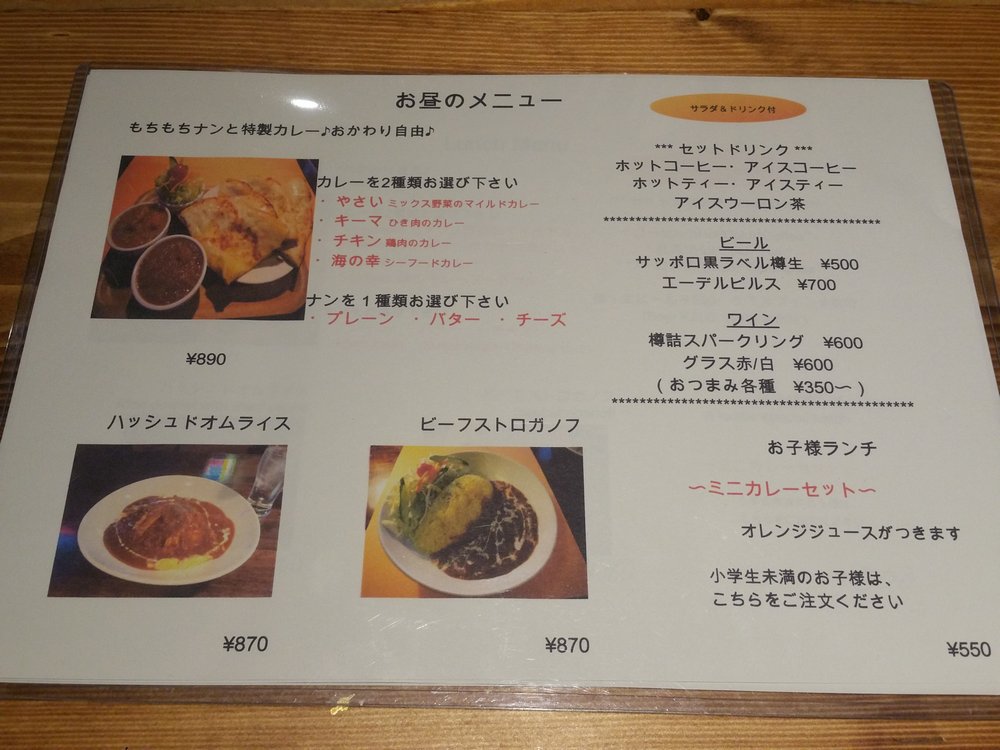 お昼のメニュー
もちもちナンと特製カレー♪おかわり自由♪
カレーを2種類お選び下さい
・やさい ミックス野菜のマイルドカレー
・キーマ ひき肉のカレー
・チキン 鶏肉のカレー
・海の幸 シーフードカレー
ナンを1種類お選び下さい
・プレーン ・バター ・チーズ
¥890
ハッシュドオムライス
¥870
ビーフストロガノフ
¥870
サラダ&ドリンク付
*** セットドリンク ***
ホットコーヒー・アイスコーヒー
ホットティー・アイスティー
アイスウーロン茶
****************************************
ビール
サッポロ黒ラベル樽生 ¥500
エーデルピルス ¥700
ワイン
樽詰スパークリング ¥600
グラス赤/白 ¥600
(おつまみ各種 ¥350〜)
********************************************
お子様ランチ
〜ミニカレーセット〜
オレンジジュースがつきます
小学生未満のお子様は、
こちらをご注文ください
¥550